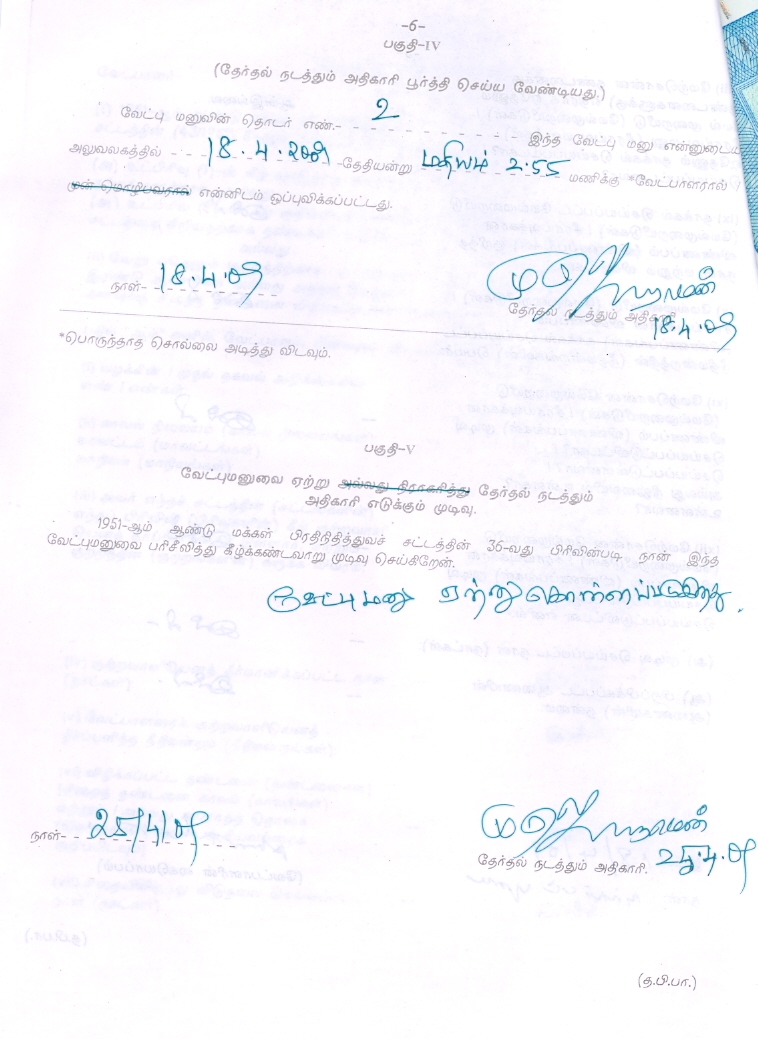 -6-
பகுதி-IV
(தேர்தல் நடத்தும் அதிகாரி பூர்த்தி செய்ய வேண்டியது.)
வேட்பு மனுவின் தொடர் எண்.- 2 இந்த வேட்பு மனு என்னுடைய
அலுவலகத்தில் 18.4.2009 -தேதியன்று மதியம் 2.55 மணிக்கு *வேட்பாளரால் /
முன் மொழிபவரால் என்னிடம் ஒப்புவிக்கப்பட்டது.
நாள்- 18.4.09
தேர்தல் நடத்தும் அதிகாரி
18.4.09
*பொருந்தாத சொல்லை அடித்து விடவும்.
பகுதி-V
வேட்புமனுவை ஏற்று அல்லது நிராகரித்து தேர்தல் நடத்தும்
அதிகாரி எடுக்கும் முடிவு.
1951-ஆம் ஆண்டு மக்கள் பிரதிநிதித்துவச் சட்டத்தின் 36-வது பிரிவின்படி நான் இந்த
வேட்புமனுவை பரிசீலித்து கீழ்க்கண்டவாறு முடிவு செய்கிறேன்.
வேட்பு மனு ஏற்றுகொள்ளப்படுகிறது.
நாள்- 25/4/09
தேர்தல் நடத்தும் அதிகாரி. 25.4.09
(த.பி.பா.)